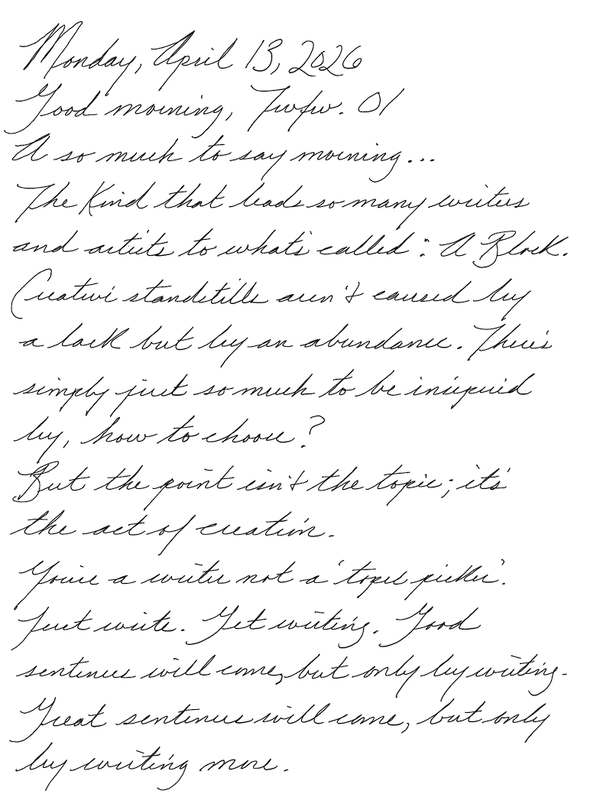 Monday, April 13, 2026
Good morning, Twfw. 01
A so much to say morning...
The Kind that leads so many writers
and artists to what's called: A Block.
Creative standstills aren't caused by
a lack but by an abundance. There's
simply just so much to be inspired
by, how to choose?
But the point isn't the topic; it's
the act of creation.
You're a writer not a 'topic picker'.
Just write. Get writing. Good
sentences will come, but only by writing.
Great sentences will come, but only
by writing more.